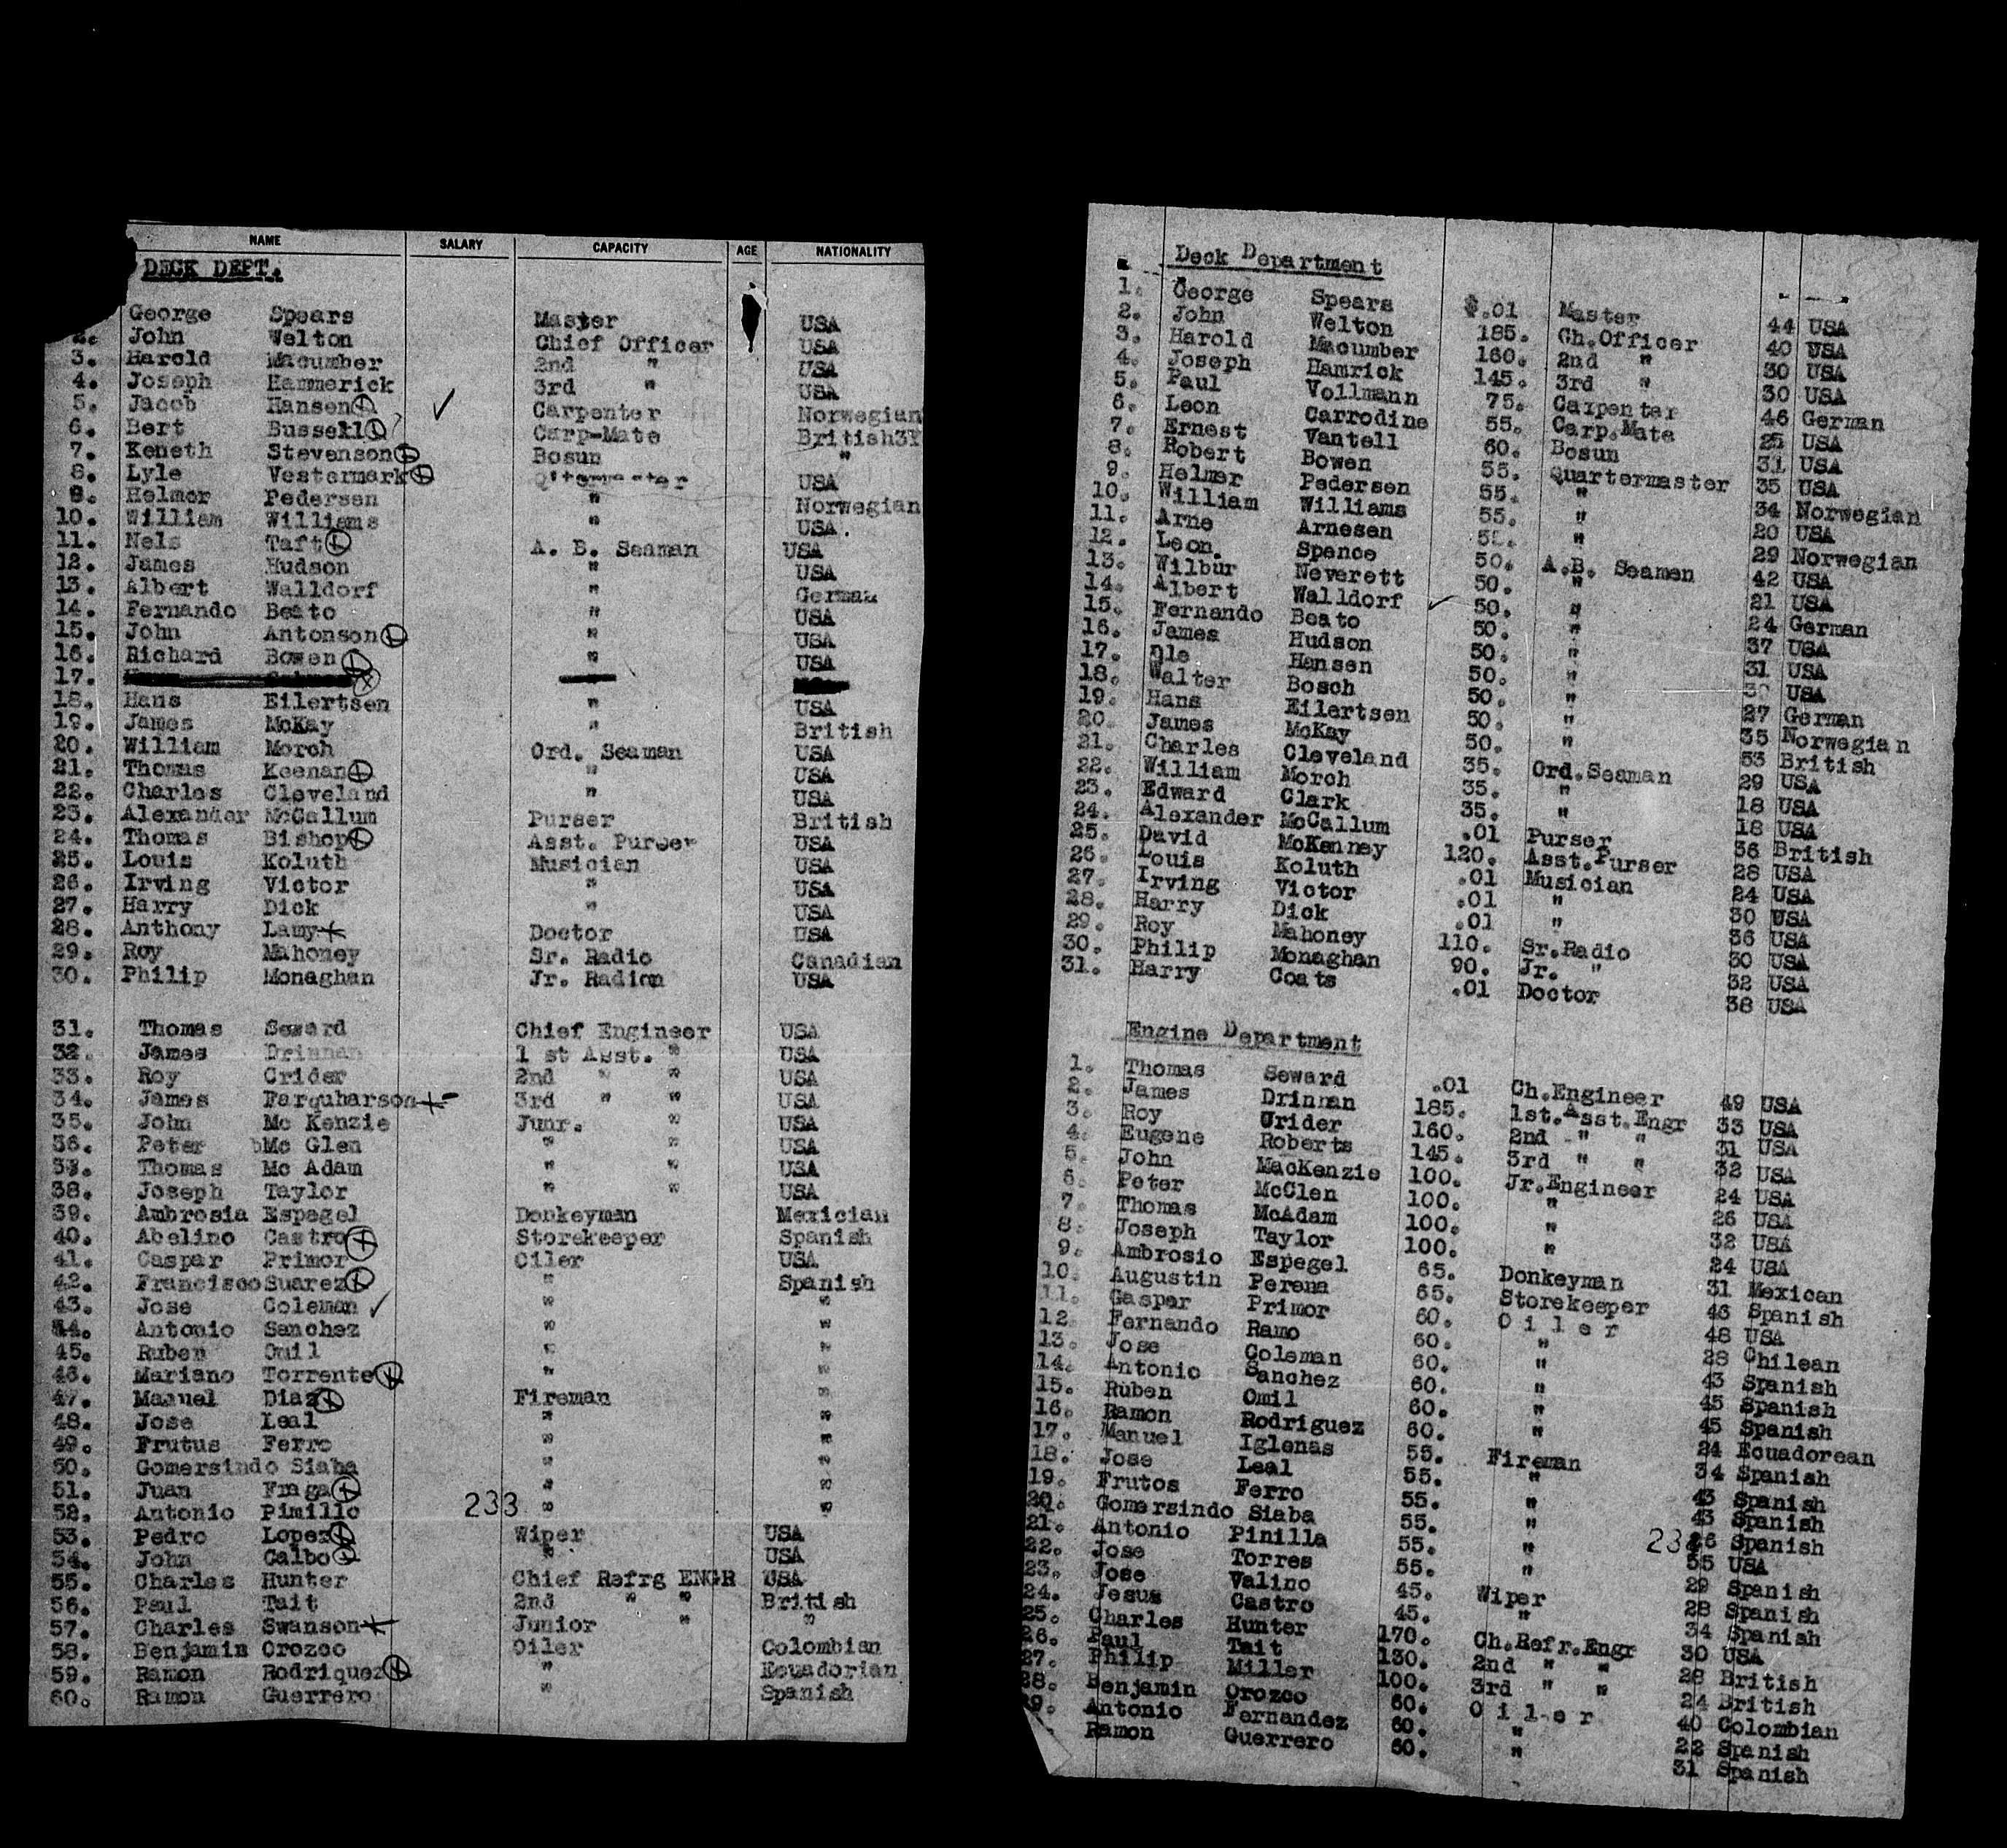 NAME SALARY CAPACITY AGE NATIONALITY
DECK DEPT.
George Spears Master USA
2. John Welton Chief Officer USA
3. Harold Macumber 2nd " USA
4. Joseph Hammerick 3rd " USA
5. Jacob Hansen ✓ Carpenter Norwegian
6. Bert Bussell Carp-Mate British
7. Keneth Stevenson Bosun "
8. Lyle Vestermark USA
9. Helmer Pedersen " Norwegian
10. William Williams " USA.
11. Nels Taft A. B. Seaman USA
12. James Hudson " USA
13. Albert Walldorf " German
14. Fernando Beato " USA
15. John Antonson " USA
16. Richard Bowen " USA
17.
18. Hans Eilertsen " USA
19. James McKay " British
20. William Morch Ord. Seaman USA
21. Thomas Keenan " USA
22. Charles Cleveland " USA
23. Alexander McCallum Purser British
24. Thomas Bishop Asst. Purser USA
25. Louis Koluth Musician USA
26. Irving Victor " USA
27. Harry Dick " USA
28. Anthony Lamy Doctor USA
29. Roy Mahoney Sr. Radio Canadian
30. Philip Monaghan Jr. Radion USA
31. Thomas Seward Chief Engineer USA
32. James Drinnan 1 st Asst. " USA
33. Roy Crider 2nd " " USA
34. James Farquharson 3rd " " USA
35. John Mc Kenzie Junr. " USA
36. Peter Mc Glen " " USA
37. Thomas Mc Adam " " USA
38. Joseph Taylor " " USA
39. Ambrosia Espegel Donkeyman Mexician
40. Abelino Castro Storekeeper Spanish
41. Caspar Primor Oiler USA
42. Francisco Suarez " Spanish
43. Jose Coleman ✓ " "
44. Antonio Sanchez " "
45. Ruben Omil " "
46. Mariano Torrente " "
47. Manuel Diaz Fireman "
48. Jose Leal " "
49. Frutus Ferro " "
50. Gomersindo Siaba " "
51. Juan Fraga " "
52. Antonio Pimillo 233 " "
53. Pedro Lopez Wiper USA
54. John Calbo " USA
55. Charles Hunter Chief Refrg ENGR USA
56. Paul Tait 2nd " " British
57. Charles Swanson Junior " "
58. Benjamin Orozco Oiler Colombian
59. Ramon Rodriquez " Ecuadorian
60. Ramon Guerrero " Spanish
Deck Department
1. George Spears $.01 Master 44 USA
2. John Welton 185. Ch.Officer 40 USA
3. Harold Macumber 160. 2nd " 30 USA
4. Joseph Hamrick 145. 3rd " 30 USA
5. Paul Vollmann 75. Carpenter 46 German
6. Leon Carrodine 55. Carp.Mate 25 USA
7. Ernest Vantell 60. Bosun 31 USA
8. Robert Bowen 55. Quartermaster 35 USA
9. Helmer Pedersen 55. " 34 Norwegian
10. William Williams 55. " 20 USA
11. Arne Arnesen 55. " 29 Norwegian
12. Leon. Spence 50. A.B. Seamen 42 USA
13. Wilbur Neverett 50. " 21 USA
14. Albert Walldorf ✓ 50. " 24 German
15. Fernando Beato 50. " 37 USA
16. James Hudson 50. " 31 USA
17. Ole Hansen 50. " USA
18. Walter Bosch 50. " 27 German
19. Hans Eilertsen 50. " 35 Norwegian
20. James McKay 50. " 53 British
21. Charles Cleveland 35. Ord.Seaman 29 USA
22. William Morch 35. " 18 USA
23. Edward Clark 35. " 18 USA
24. Alexander McCallum .01 Purser 36 British
25. David McKenney 120. Asst.Purser 28 USA
26. Louis Koluth .01 Musician 24 USA
27. Irving Victor .01 " 30 USA
28. Harry Dick .01 " 36 USA
29. Roy Mahoney 110. Sr.Radio 30 USA
30. Philip Monaghan 90. Jr. " 32 USA
31. Harry Coats .01 Doctor 38 USA
Engine Department
1. Thomas Seward .01 Ch.Engineer 49 USA
2. James Drinnan 185. 1st.Asst.Engr 33 USA
3. Roy Crider 160. 2nd " " 31 USA
4. Eugene Roberts 145. 3rd " " 32 USA
5. John MacKenzie 100. Jr.Engineer 24 USA
6. Peter McGlen 100. " 26 USA
7. Thomas McAdam 100. " 32 USA
8. Joseph Taylor 100. " 24 USA
9. Ambrosio Espegel 65. Donkeyman 31 Mexican
10. Augustin Perena 65. Storekeeper 46 Spanish
11. Gaspar Primor 60. O i l e r 48 USA
12. Fernando Ramo 60. " 28 Chilean
13. Jose Coleman 60. " 43 Spanish
14. Antonio Sanchez 60. " 45 Spanish
15. Ruben Omil 60. " 45 Spanish
16. Ramon Rodriguez 60. " 24 Ecuadorean
17. Manuel Iglenas 55. Fireman 34 Spanish
18. Jose Leal 55. " 43 Spanish
19. Frutos Ferro 55. " 43 Spanish
20. Gomersindo Siaba 55. " Spanish
21. Antonio Pinilla 55. " 35 USA
22. Jose Torres 55. " 29 Spanish
23. Jose Valino 45. Wiper 28 Spanish
24. Jesus Castro 45. " 34 Spanish
25. Charles Hunter 170. Ch.Refr.Engr 30 USA
26. Paul Tait 130. 2nd " " 28 British
27. Philip Miller 100. 3rd " " 24 British
28. Benjamin Orozco 60. O i l e r 40 Colombian
29. Antonio Fernandez 60. " 22 Spanish
Ramon Guerrero 60. " 31 Spanish